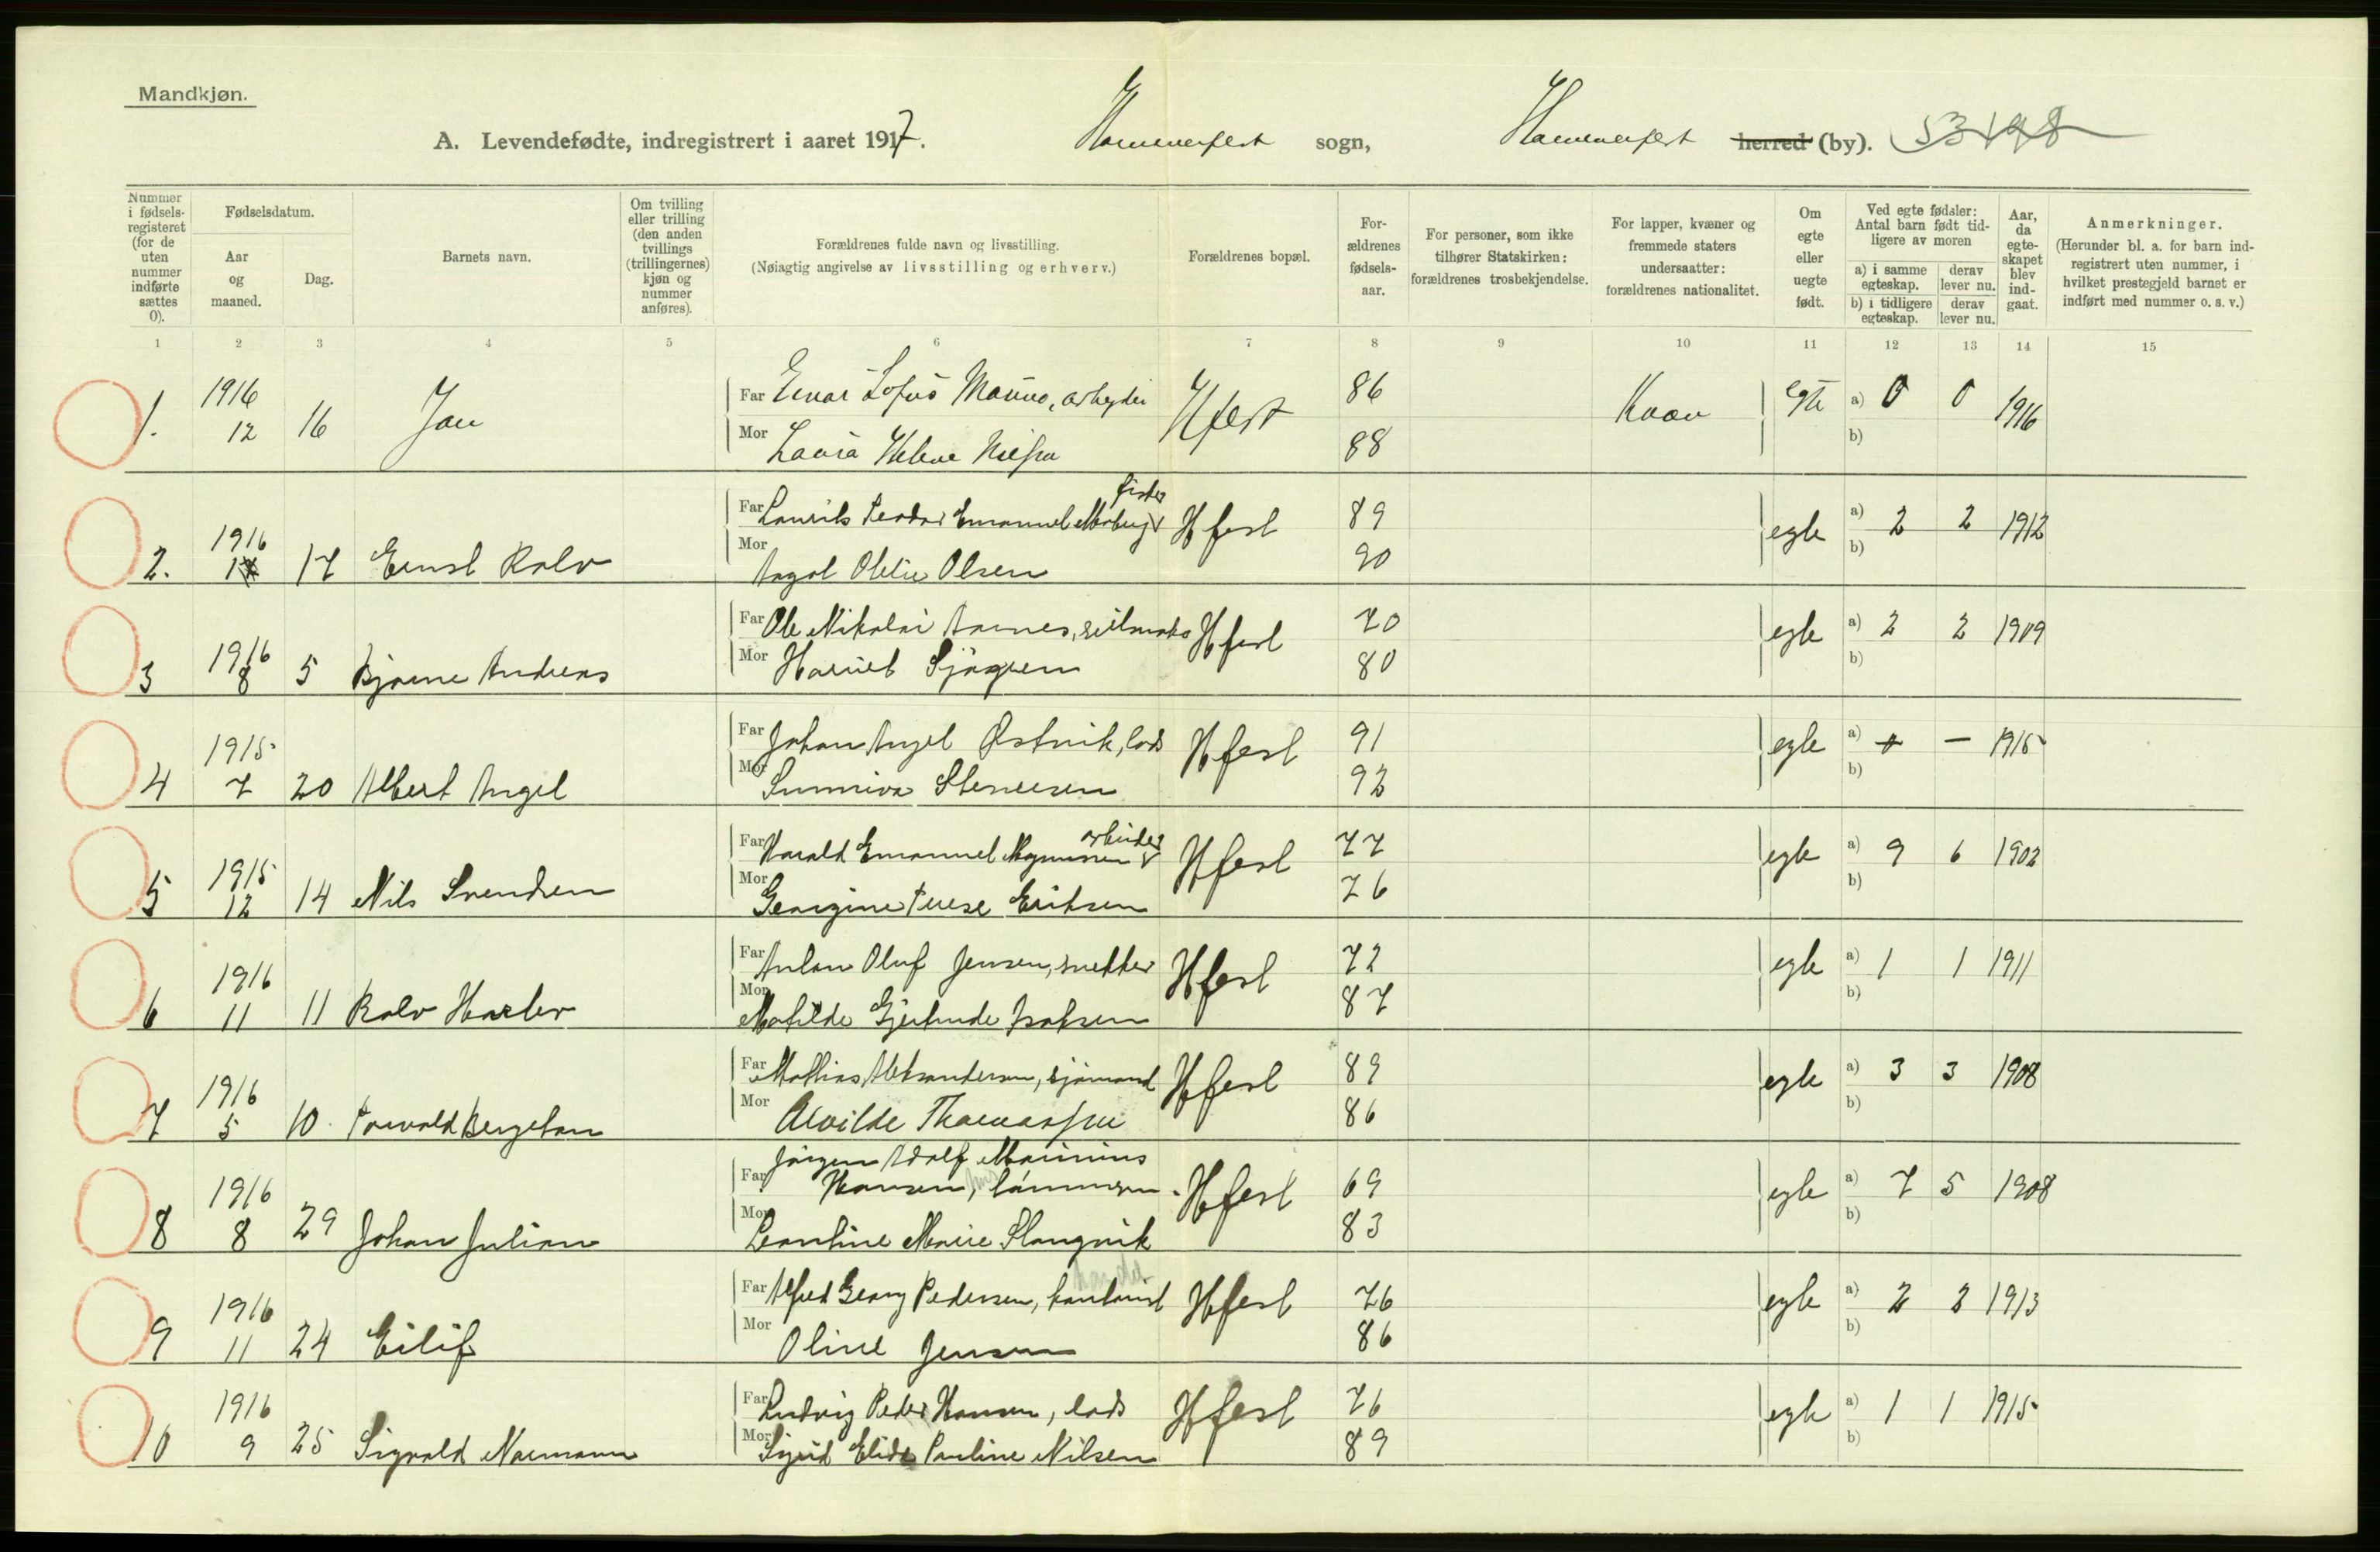 Mandkjøn.
A. Levendefødte, indregistrert i aaret 1917. Hammerfest sogn, Hammerfest herred (by). 53198
Nummer i fødsels-registeret (for de uten nummer indførte sættes 0).
Fødselsdatum.
Aar og maaned.
Dag.
Barnets navn.
Om tvilling eller trilling (den anden tvillings (trillingernes) kjøn og nummer anføres).
Forældrenes fulde navn og livsstilling.
(Nøiagtig angivelse av livsstilling og erhverv.)
Forældrenes bopæl.
For-ældrenes fødsels-aar.
For personer, som ikke tilhører Statskirken: forældrenes trosbekjendelse.
For lapper, kvæner og fremmede staters undersaatter: forældrenes nationalitet.
Om egte eller uegte født.
Ved egte fødsler: Antal barn født tid-ligere av moren
a) i samme egteskap. derav lever nu.
b) i tidligere egteskap. derav lever nu.
Aar, da egte-skapet blev ind-gaat.
Anmerkninger.
(Herunder bl. a. for barn ind-registrert uten nummer, i hvilket prestegjeld barnet er indført med nummer o. s. v.)
1 2 3 4 5 6 7 8 9 10 11 12 13 14 15
1. 1916 12 16 Jan
Far Einar Sofus arbeyder Hfest 86 egte a) 0 0 1916
Mor Laura Helene 88 b)
2. 1916 17 Ernst Rolv
fisker
Far Laurits Teodor Emanuel Hfest 89 egte a) 2 2 1912
Mor Olsen 90 b)
3 1916 8 5 Bjarne Andreas
Far Ole Nikolai Hfest 70 egte a) 2 2 1909
Mor Harriet Sjögren 80 b)
4 1915 7 20 Albert Angel
Far Johan Angel Østvik, lods Hfest 91 egte a) — 1915
Mor Sunniva 92 b)
5 1915 12 14 Nils Svendsen
arbeider
Far Harald Emanuel Magnussen Hfest 77 egte a) 9 6 1902
Mor Georgine Terese Eriksen 76 b)
6 1916 11 11 Rolv Harlev
Far Anton Oluf Jensen, snekker Hfest 72 egte a) 1 1 1911
Mor Matilde Gjertrude Isaksen 87 b)
7 1916 5 10 Torvald Bergeton
Far Mathias Aleksandersen, sjömand Hfest 89 egte a) 3 3 1908
Mor Alvilde Thomassen 86 b)
8 1916 8 29 Johan Julian
Jörgen Adolf Marinius
Far Hansen, Hfest 69 egte a) 7 5 1908
Mor Leontine Marie Slangvik 83 b)
9 1916 11 24 Eilif
Far Alfred Georg Pedersen, kontorist Hfest 76 egte a) 2 2 1913
Mor Oline Jensen 86 b)
10 1916 9 25 Sigvald Normann
Far Ludvig Peder Hansen, lods Hfest 76 egte a) 1 1 1915
Mor Sigrid Elida Pauline Nilsen 89 b)